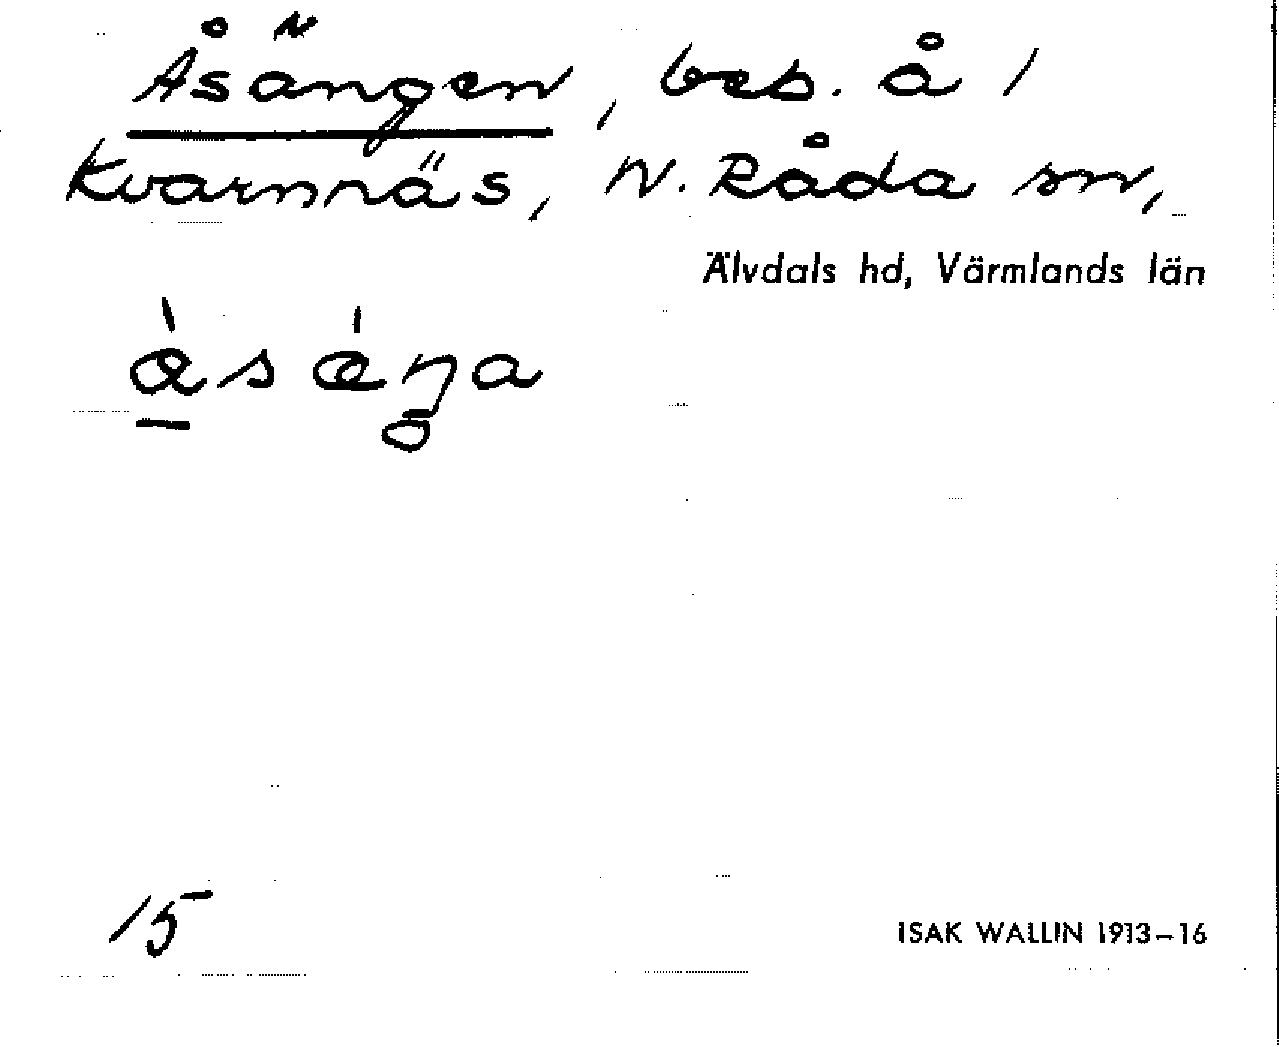 Åsängen, beb. å 1
Kvarnnäs, N. Råda sn,
Älvdals hd, Värmlands län
15
ISAK WALLIN 1913–16